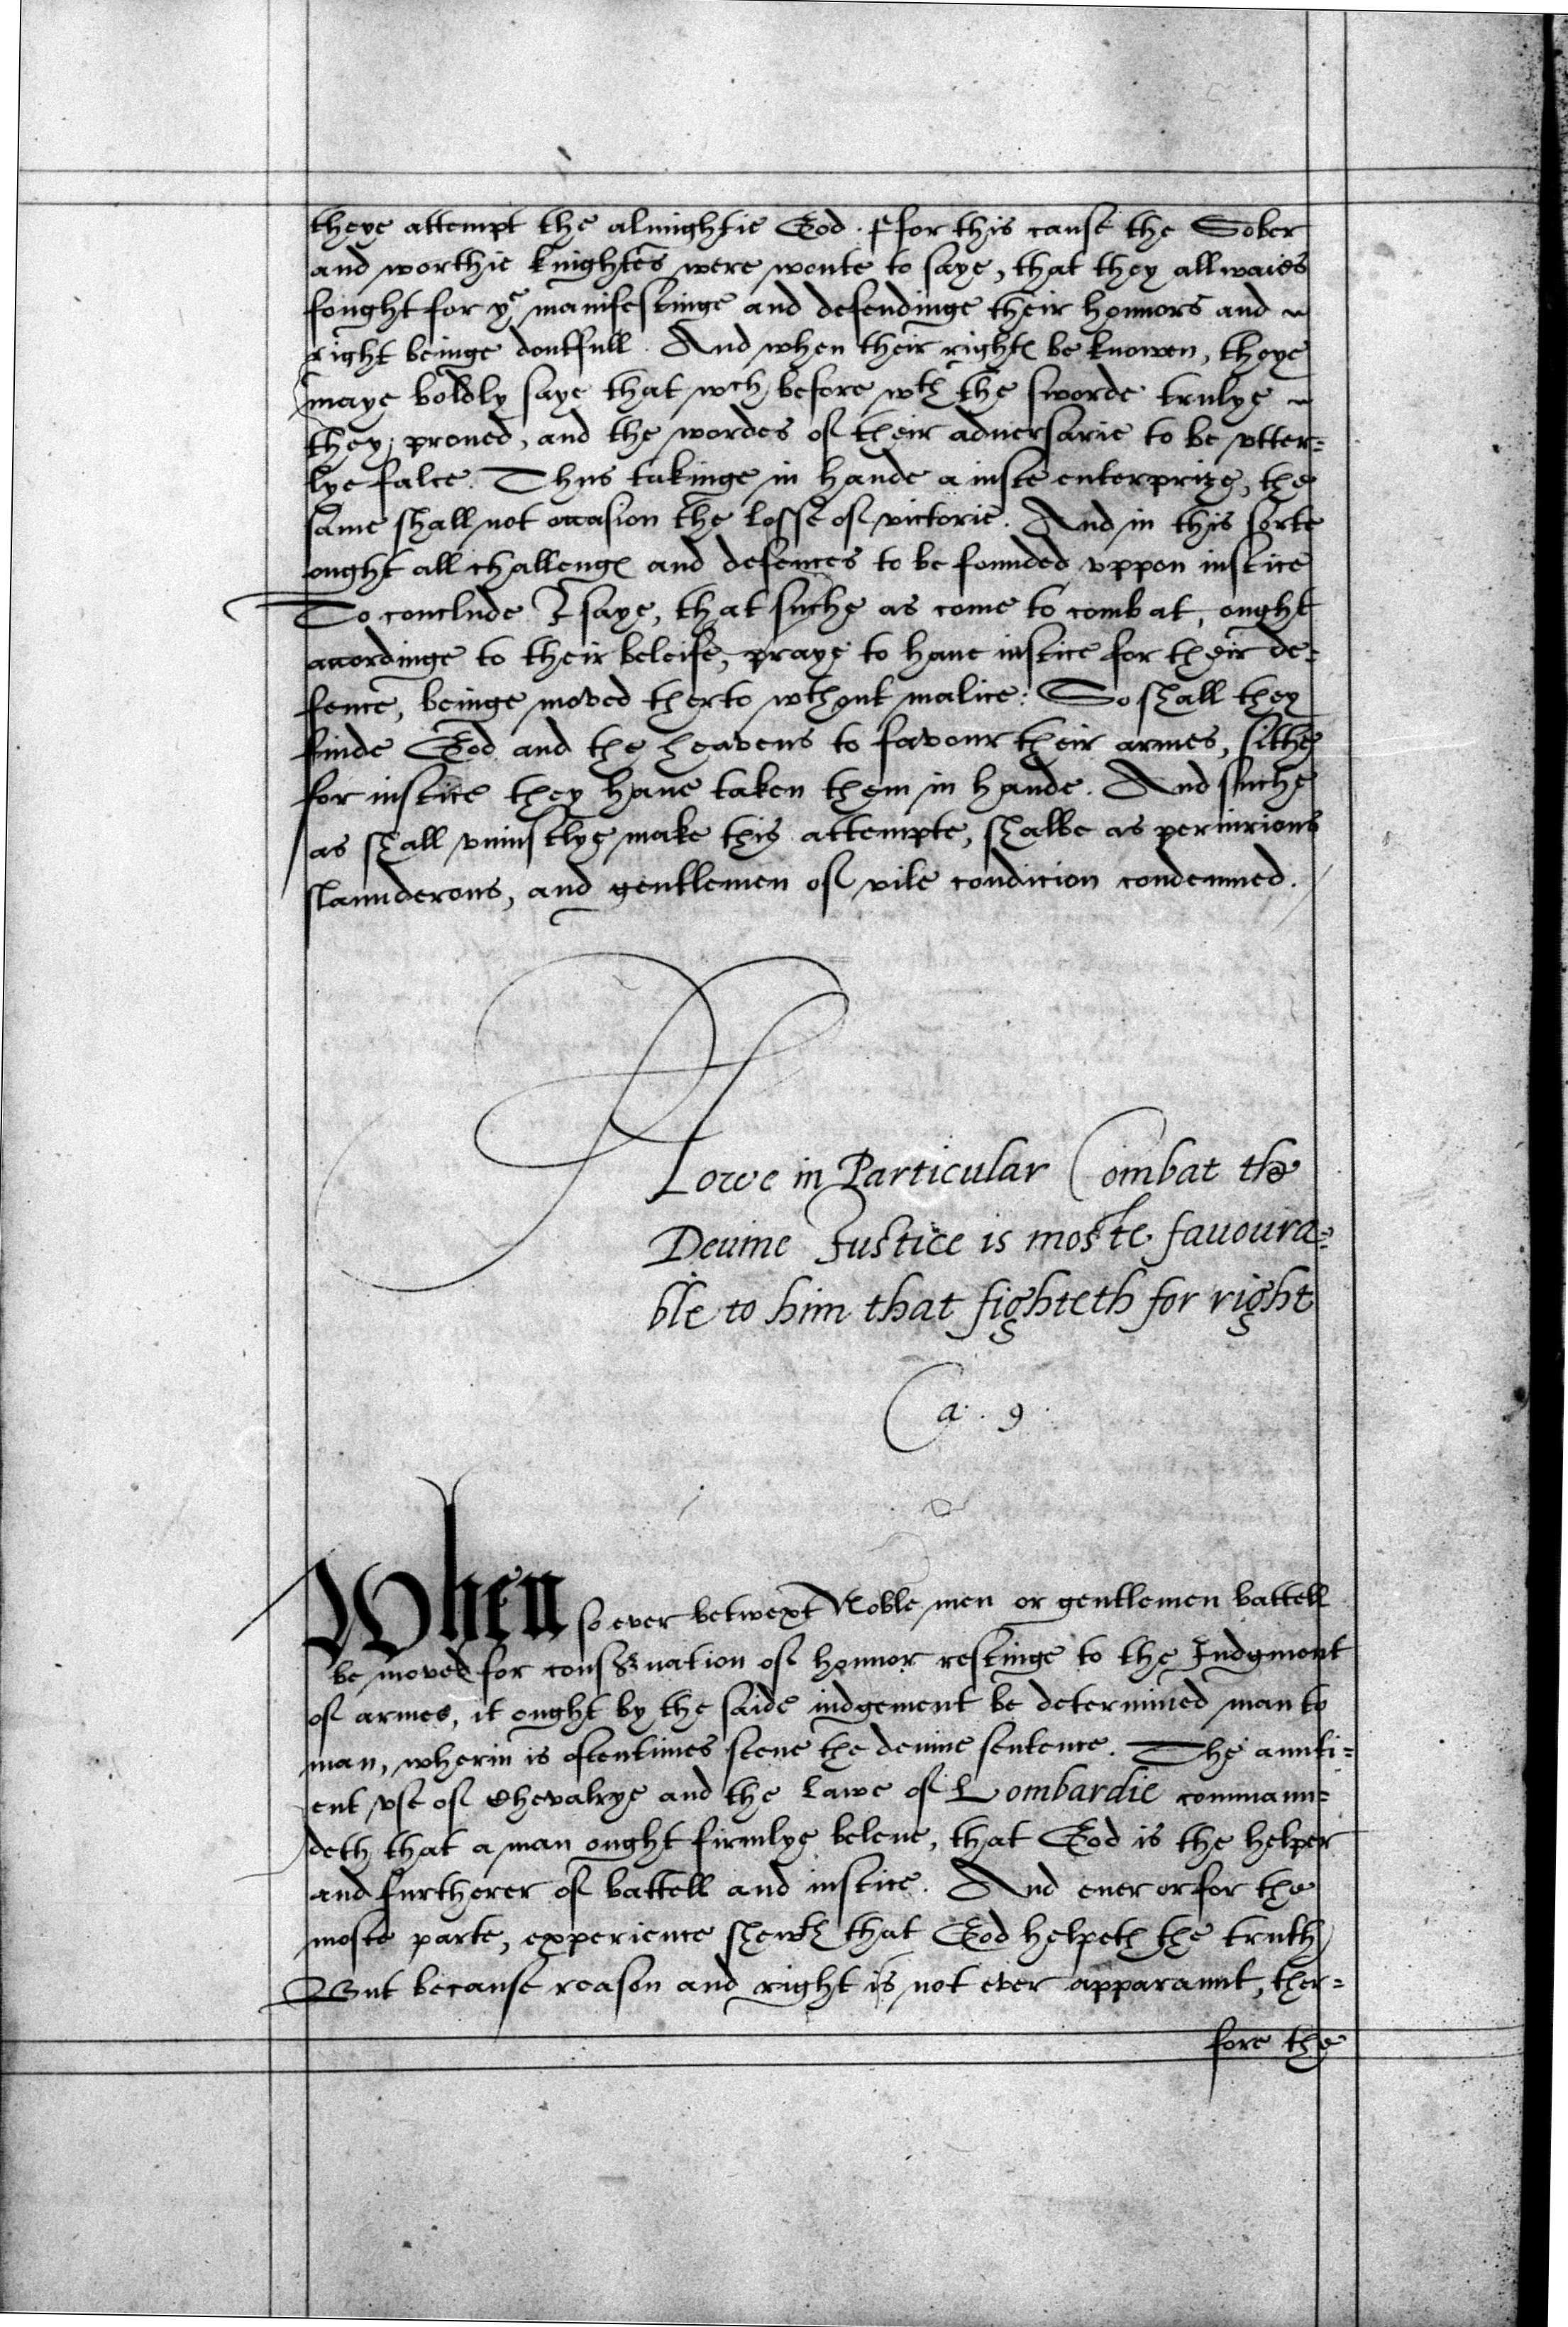 theye attempt the almightie God. ffor this cause the Sober
and worthie knightes were wonte to saye, that they allwaies
fought for ye manifestinge and defendinge their honnors and
right beinge doutfull. And when their rightes be knowen, theye
maye boldly saye that wch before wth the sworde trulye
they proued, and the wordes of their aduersarie to be vtter=
lye false. Thus takinge in hande a iuste enterprize, the
same shall not occasion the losse of victorie. And in this sorte
ought all challenges and defences to be founded vppon iustice
To conclude I saye, that suche as come to combat, ought
accordinge to their beleife, praye to haue iustice for their de=
fence, beinge moved therto wthout malice: So shall they
finde God and the heavens to favour their armes, sithe
for iustice they haue taken them in hande. And suche
as shall vniustlye make this attempte, shalbe as periurious
slaunderous, and gentlemen of vile condicion condemned.
Howe in Particular Combat the
Deuine Justice is moste fauoura=
ble to him that fighteth for right
Ca. 9.
When so ever betwext Noble men or gentlemen battell
be moved for conseruation of honnor restinge to the Iudgment
of armes, it ought by the saide iudgement be determined man to
man, wherin is oftentimes seene the deuine sentence. The aunti=
ent vse of Chevalrye and the lawe of Lombardie commaun=
deth that a man ought firmlye beleue, that God is the helper
and furtherer of battell and iustice. And euer or for the
moste parte, experience shewth that God helpeth the truth
But because reason and right is not ever apparaunt, ther=
fore the